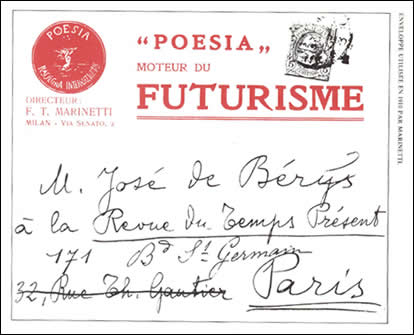 POESIA
RASSEGNA INTERNAZIONALE
"POESIA„
MOTEUR DU
FUTURISME
DIRECTEUR:
F. T. MARINETTI
MILAN - VIA SENATO, 2
15
M. José de Bérys
à la Revue du Temps Présent
171 Bd St Germain
32, Rue Th. Gautier Paris
ENVELOPPE UTILISÉE EN 1910 PAR MARINETTI.